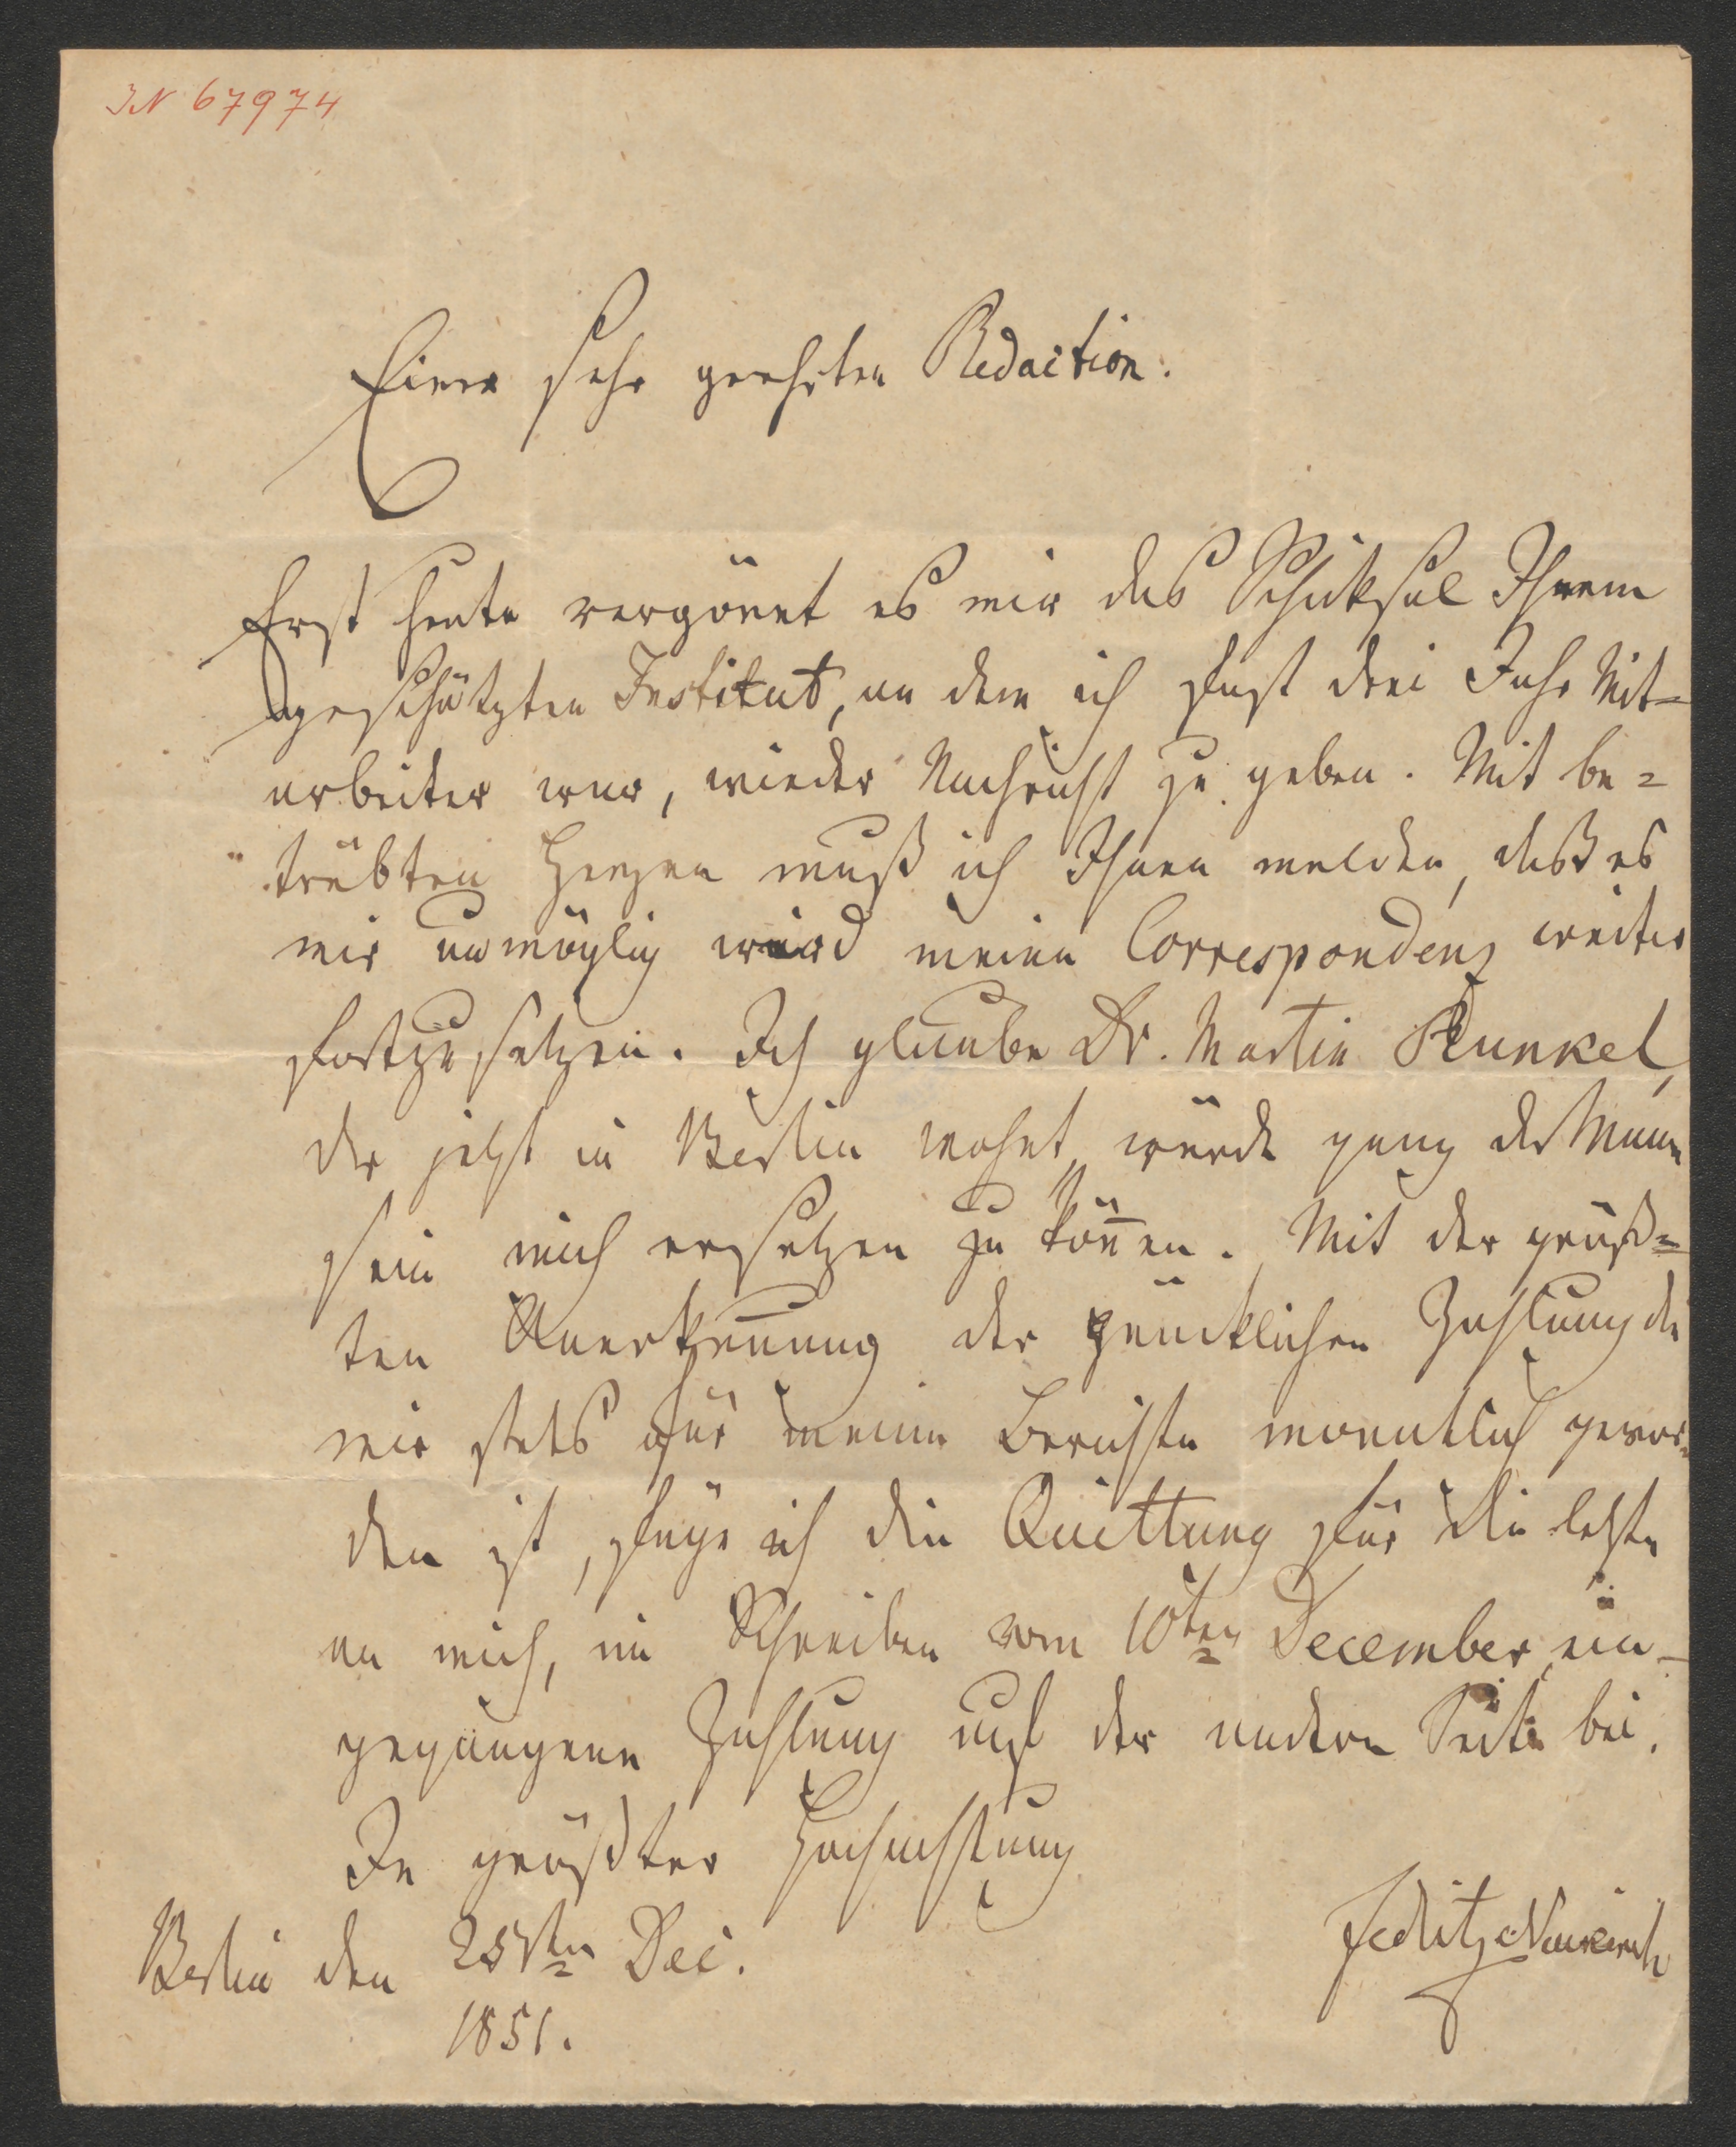 IN 67974
Einer sehr geehrten Redaction.
Erst heute vergönnt es mir das Schicksal Ihrem
geschätzten Institut, an dem ich fast drei Jahr Mit-
arbeiter war, wieder Nachricht zu geben. Mit be-
trübten Herzen muß ich Ihnen melden, daß es
mir unmöglich wird meine Correspondenz weiter
fortzusetzen. Ich glaube Dr. Martin Runkel,
der jetzt in Berlin wohnt, würde ganz der Mann
sein mich ersetzen zu können. Mit der größ-
ten Anerkennung der pünktlichen Zahlung die
mir stets für meine Berichte monatlich gewor-
den ist, füge ich die Quittung für die letzte
an mich, im Schreiben vom 10ten December, ein-
gegangene Zahlung auf der andern Seite bei.
In größter Hochachtung
Berlin den 25sten Dec.
1851.